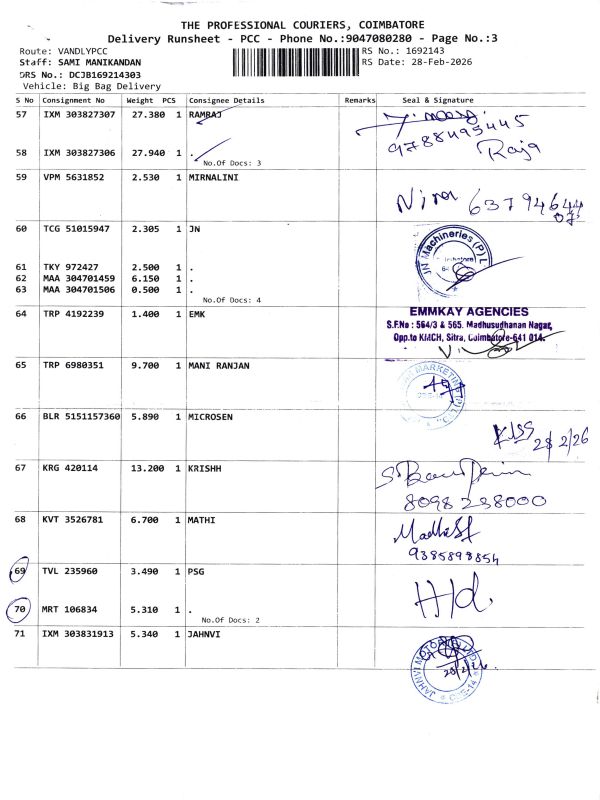 THE PROFESSIONAL COURIERS, COIMBATORE
Delivery Runsheet - PCC - Phone No.:9047080280 - Page No.:3
Route: VANDLYPCC RS No.: 1692143
Staff: SAMI MANIKANDAN RS Date: 28-Feb-2026
DRS No.: DCJB169214303
Vehicle: Big Bag Delivery
S No Consignment No Weight PCS Consignee Details Remarks Seal & Signature
57 IXM 303827307 27.380 1 RAMRAJ
9788495445
58 IXM 303827306 27.940 1 . Raja
No.Of Docs: 3
59 VPM 5631852 2.530 1 MIRNALINI
63794644
07
60 TCG 51015947 2.305 1 JN
JN Machineries (P) L
61 TKY 972427 2.500 1 .
62 MAA 304701459 6.150 1 .
63 MAA 304701506 0.500 1 .
No.Of Docs: 4
64 TRP 4192239 1.400 1 EMK
EMMKAY AGENCIES
S.F.No : 564/3 & 565. Madhusudhanan Nagar,
Opp.to KMCH, Sitra, Coimbatore-641 014.
65 TRP 6980351 9.700 1 MANI RANJAN
MARKETING (P) L
66 BLR 5151157360 5.890 1 MICROSEN
28 2/26
67 KRG 420114 13.200 1 KRISHH
8098 238000
68 KVT 3526781 6.700 1 MATHI
9385898854
69 TVL 235960 3.490 1 PSG
H/d.
70 MRT 106834 5.310 1 .
No.Of Docs: 2
71 IXM 303831913 5.340 1 JAHNVI
JAHNVI MOTOR
28/2/26
CBE-14